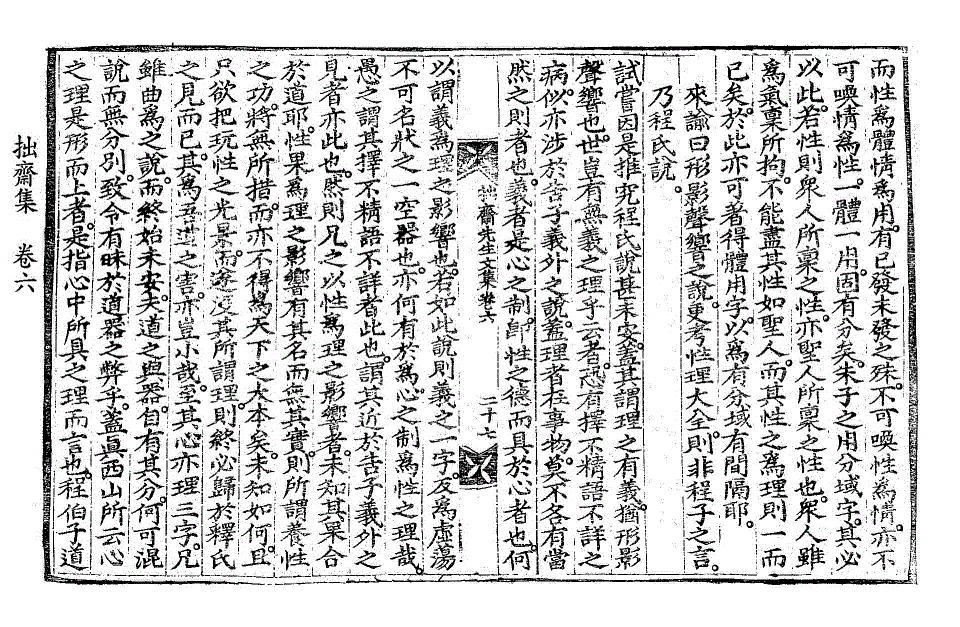 而性爲體情爲用。有已發未發之殊。不可喚性爲情。亦不
可喚情爲性。一體一用。固有分矣。朱子之用分域字。其必
以此。若性則衆人所稟之性。亦聖人所稟之性也。衆人雖
爲氣稟所拘。不能盡其性如聖人。而其性之爲理則一而
已矣。於此亦可著得體用字。以爲有分域有間隔耶。
來諭曰形影聲響之說。更考性理大全。則非程子之言。
乃程氏說。
試嘗因是推究程氏說甚未安。蓋其謂理之有義。猶形影
聲響也。世豈有無義之理乎云者。恐有擇不精語不詳之
病。似亦涉於告子義外之說。蓋理者在事物。莫不各有當
然之則者也。義者是心之制。卽性之德而具於心者也。何
拙齋先生文集卷六
二十七
以謂義爲理之影響也。若如此說則義之一字。反爲虛蕩
不可名狀之一空器也。亦何有於爲心之制爲性之理哉。
愚之謂其擇不精語不詳者此也。謂其近於告子義外之
見者亦此也。然則凡之以性爲理之影響者。未知其果合
於道耶。性果爲理之影響有其名而無其實。則所謂養性
之功。將無所措。而亦不得爲天下之大本矣。未知如何。且
只欲把玩性之光景。而遂沒其所謂理。則終必歸於釋氏
之見而已。其爲吾道之害。亦豈小哉。至其心亦理三字。凡
雖曲爲之說。而終始未安。夫道之與器。自有其分。何可混
說而無分別。致令有昧於道器之弊乎。蓋眞西山所云心
之理是形而上者。是指心中所具之理而言也。程伯子道
拙齋集 卷六